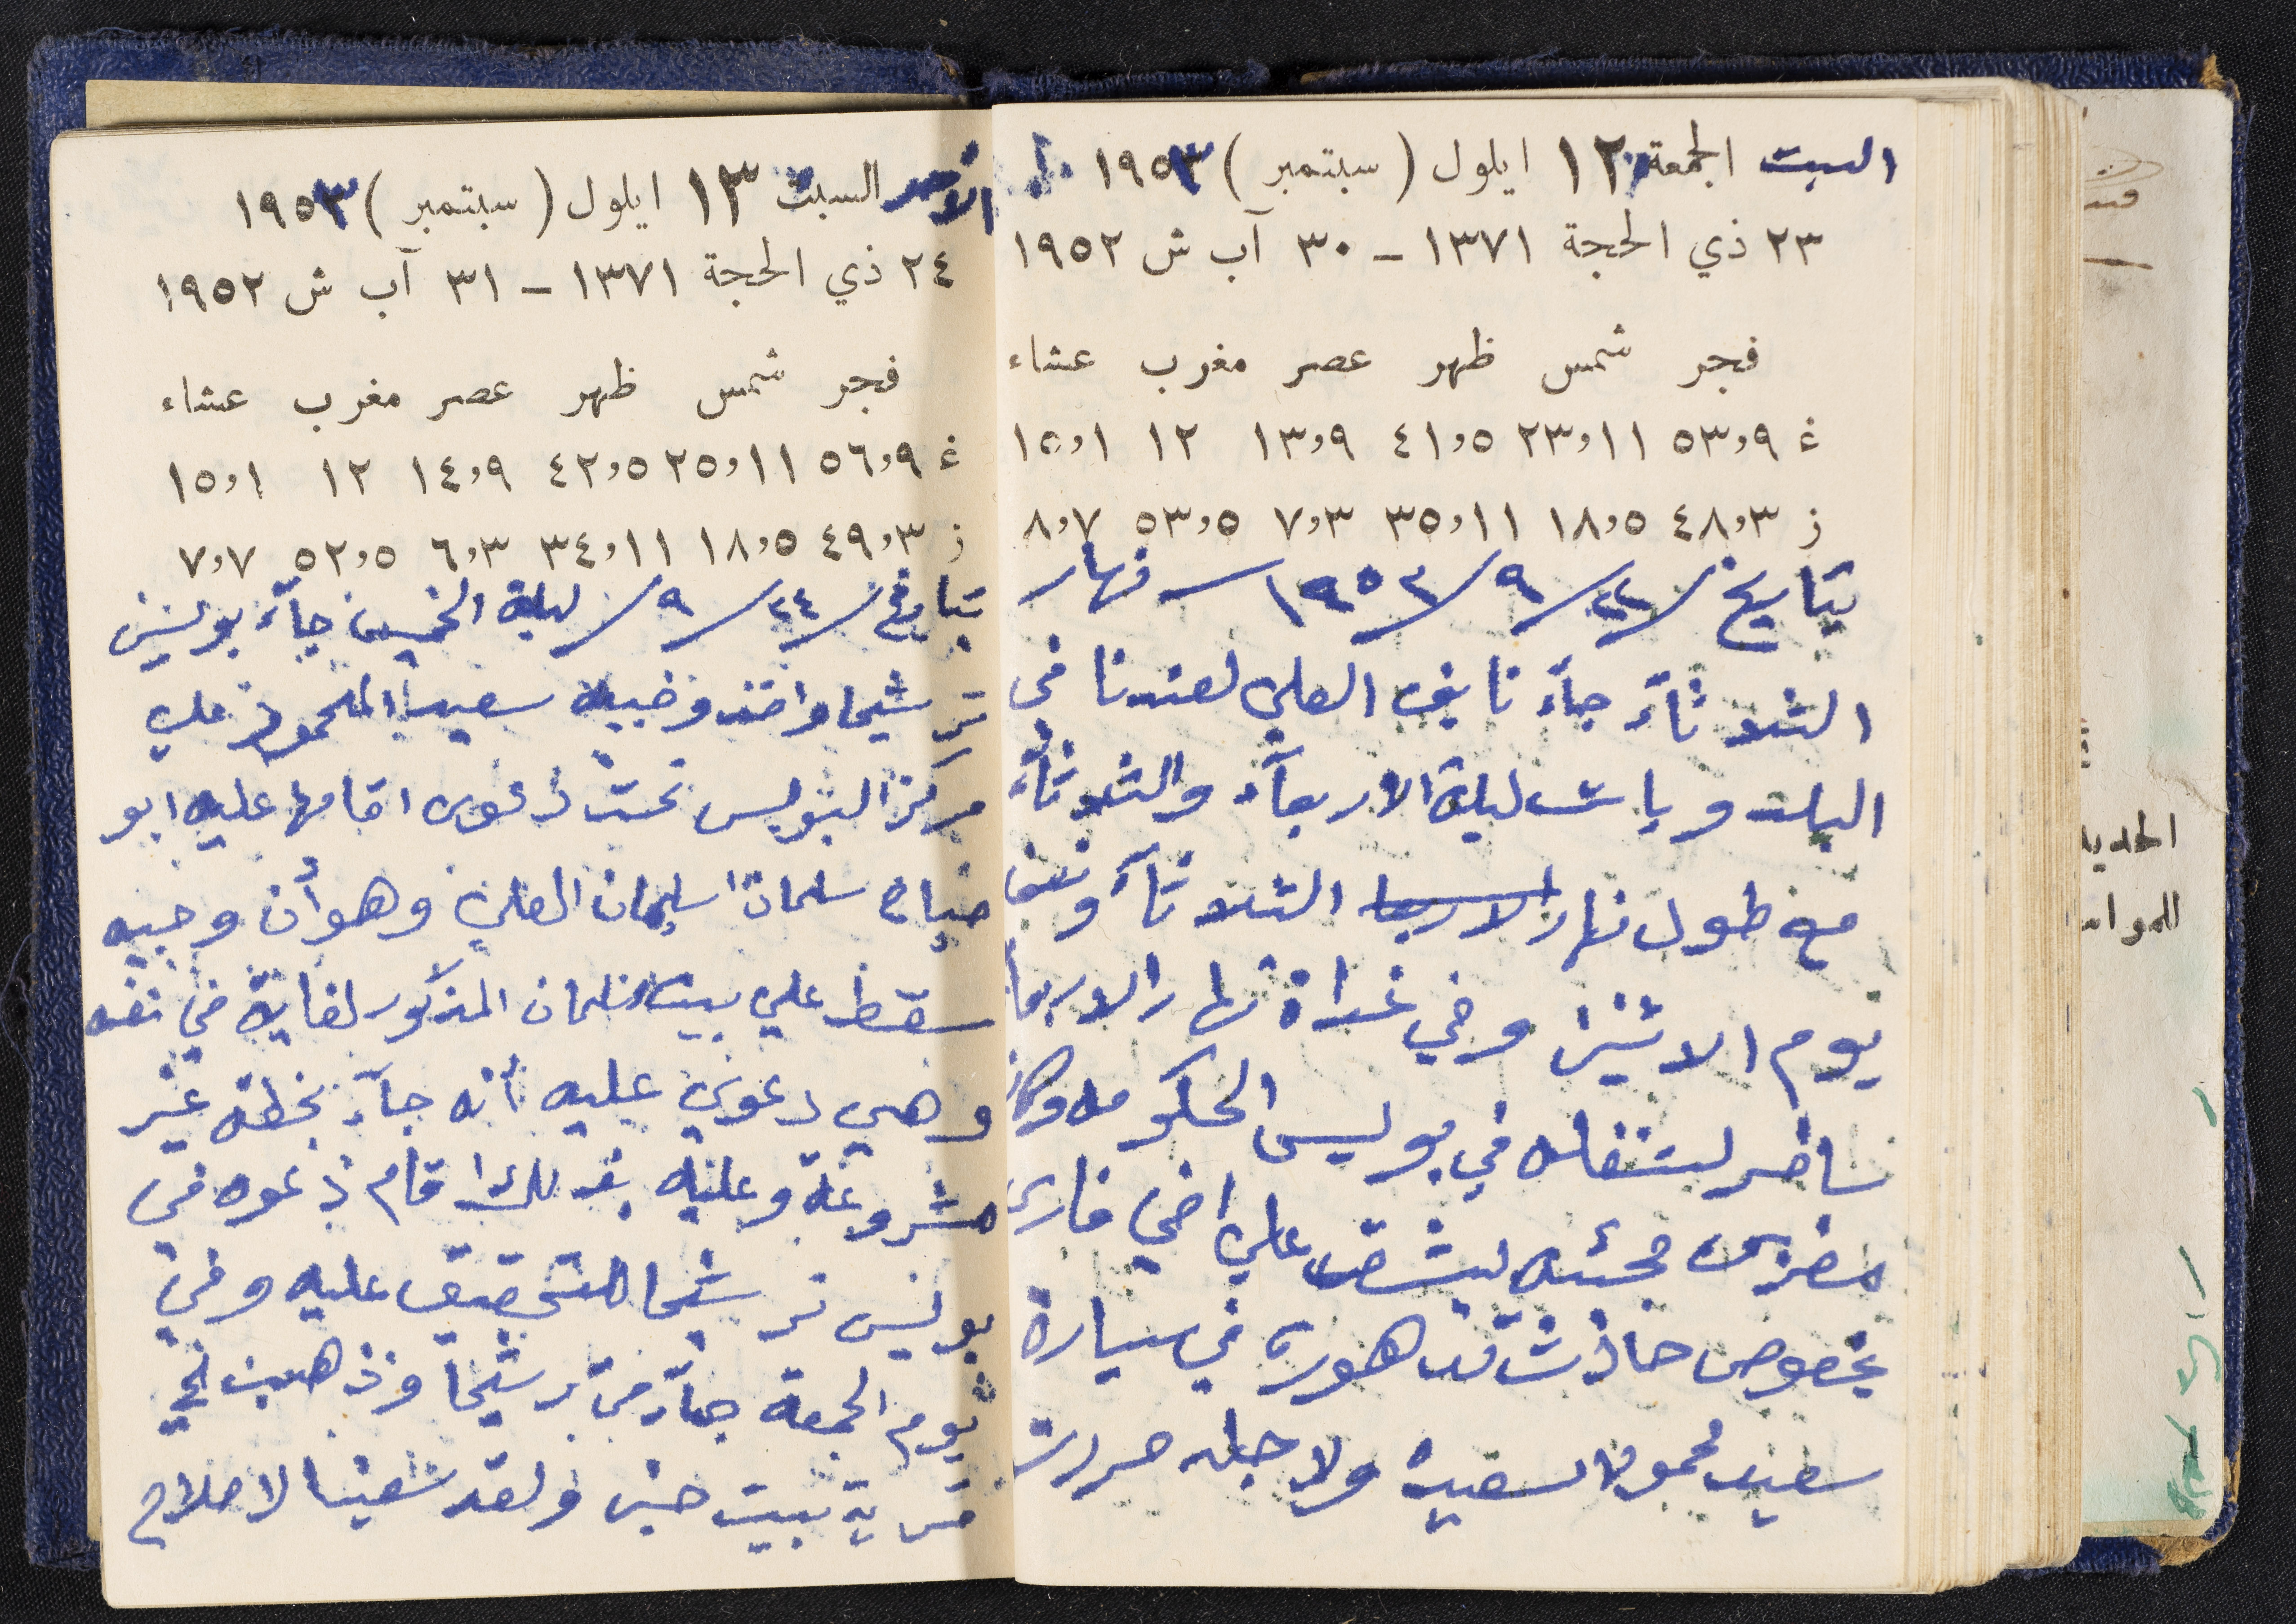 السبت الجمعة ١٢ ايلول ( سبتمبر ) ١٩٥٣
٢٣ ذي الحجة ١٣٧١ - ٣٠ آب ش ١٩٥٢
فجر شمس ظهر عصر مغرب عشاء
غ ٥٣،٩ ٢٣،١١ ٤١،٥ ١٣،٩ ١٢ ١٥،١
ز ٤٨،٣ ١٨،٥ ٣٥،١١ ٧،٣ ٥٣،٥ ٨،٧
بتايخ /٢٢/ ٩/ ١٩٥٣ نهار
الثلاثآء جآء نايف العلي لعندنا في
البلد وبات ليلة الاربعآء والثلاثآء
مع طول نهار الاربعا الثلاثآء
يوم الاثنين وفي غداة نهار الاربعا
سافر لشغله في بوليس الحكومه وكان
مغزى مجئه ليشق علي اخي
بخصوص حادث تدهوره في سيارة
سعيد محمود سعيد ولاجله حررت
الأحد السبت ١٣ ايلول ( سبتمبر ) ١٩٥٣
٢٤ ذي الحجة ١٣٧١ - ٣١ آب ش ١٩٥٢
فجر شمس ظهر عصر مغرب عشاء
غ ٥٦،٩ ٢٥،١١ ٤٢،٥ ١٤،٩ ١٢ ١٥،١
ز ٤٩،٣ ١٨،٥ ٣٤،١١ ٦،٣ ٥٢،٥ ٧،٧
بتاريخ /٢٤/ ٩/ ليلة الخميس جآء بوليس
ترشيحا واخذ وجيه سعيد المحمود علي
مركز البوليس تحت دعوى اقامها عليه ابو
صياح سلمان اسليمان العلي وهو أن وجيه
سقط علي بيت سلمان المذكور لغاية في نفسه
وهي دعوى عليه أنه جآء بخطة غير
مشروعة وعليه بذلك اقام دعوه في
بوليس ترشيحا للتحقيق عليه وفي
يوم الجمعة جآء من ترشيحا وذهب
قرية بيت جن ولقد سعينا لاصلاح